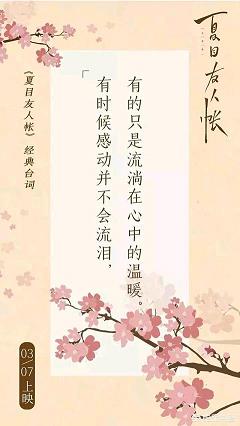 夏目友人帐
《夏目友人帐》经典台词
「有时候感动并不会流泪，
有的只是流淌在心中的温暖。
03/07上映